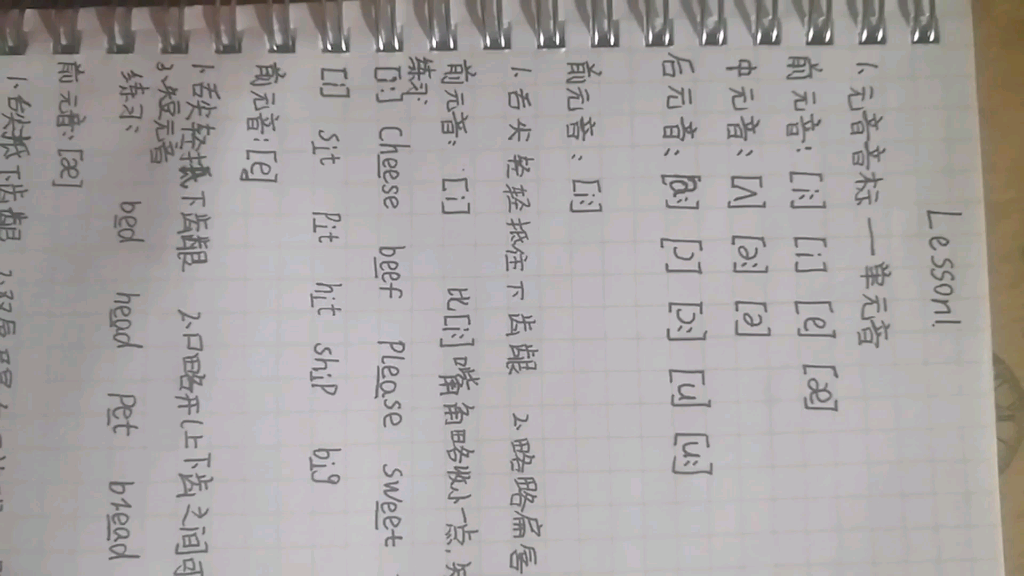 Lesson1
1、元音音标一单元音
前元音：[i:] [i] [e] [æ]
中元音：[ʌ] [ə:] [ə]
后元音：[a:] [ɔ] [ɔ:] [u] [u:]
前元音：[i:]
1、舌尖轻轻抵住下齿龈 2、略略扁唇
前元音：[i] 比[i:]嘴角略收小一点，
练习：
[i:] Cheese beef Please sweet
[i] sit Pit hit shiP big
前元音：[e]
1、舌尖轻抵下齿龈 2、口略开(上下齿之间可
3、短元音
练习： bed head Pet bread
前元音：[æ]
1、舌尖抵下齿龈 2、双唇